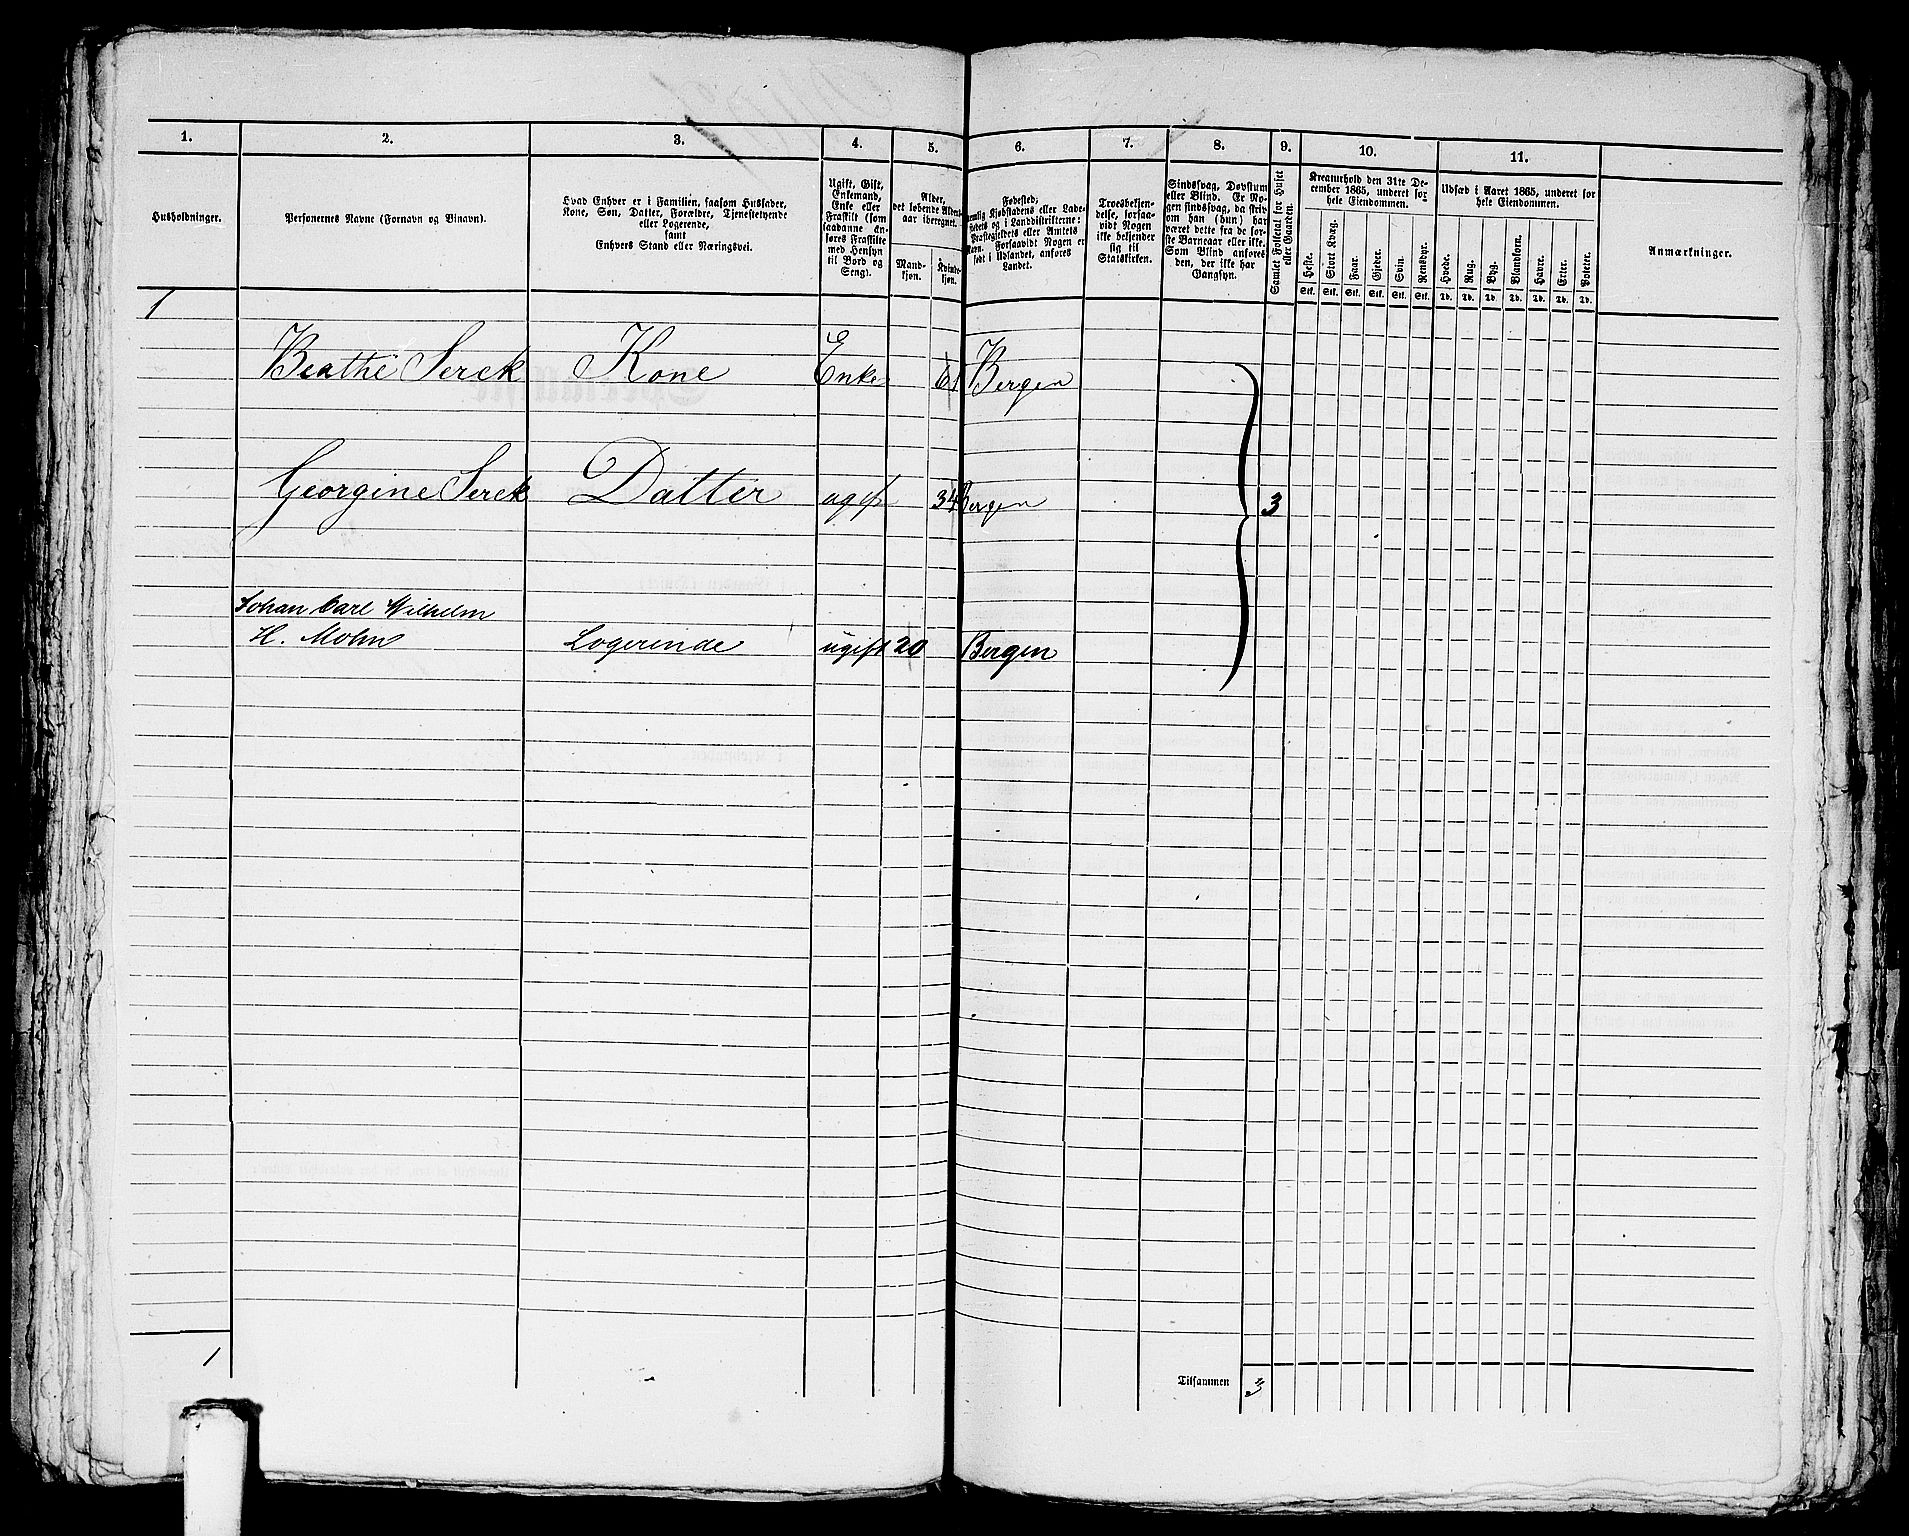 1. 2. 3. 4. 5. 6. 7. 8. 9. 10. 11.
Husholdninger.
Personernes Navne (Fornavn og Tilnavn).
Hvad Enhver er i Familien, saasom Husfader,
Kone, Søn, Datter, Forældre, Tjenestetyende
eller Logerende,
samt
Enhvers Stand eller Næringsvei.
Ugift, Gift,
Enkemand,
Enke eller
Fraskilt (som
saadanne an-
føres Fraskilte
med Hensyn
til Bord og
Seng).
Alder,
det løbende Alders-
aar iberegnet.
Mand-
kjøn.
Kvinde-
kjøn.
Fødested;
nemlig Kjøbstadens eller Lade-
stedets og i Landdistrikterne:
Præstegjeldets eller Amtets
Navn. Forsaavidt Nogen er
født i Udlandet, anføres
Landet.
Troesbekjen-
delse, forsaa-
vidt Nogen
ikke bekjender
sig til
Statskirken.
Sindssvag, Døvstum
eller Blind. Er No-
gen sindssvag, da skriv
om han (hun) har
været dette fra de før-
ste Barneaar eller ikke.
Som Blind anføres
den, der ikke har
Gangsyn.
Samlet Folketal for Huset
eller Gaarden.
Kreaturhold den 31te De-
cember 1865, underet for
hele Eiendommen.
Heste. Stort Kvæg. Faar. Gjeder. Svin. Rensdyr.
Stk. Stk. Stk. Stk. Stk. Stk.
Udsæd i Aaret 1865, underet for
hele Eiendommen.
Hvede. Rug. Byg. Blandkorn. Havre. Erter. Poteter.
Td. Td. Td. Td. Td. Td. Td.
Anmærkninger.
1
Beathe Serck Kone Enke 61 Bergen
Georgine Serck Datter ugift 34 Bergen 3
Johan Carl Wilhelm
H. Mohn Logerende ugift 20 Bergen
1 Tilsammen 3